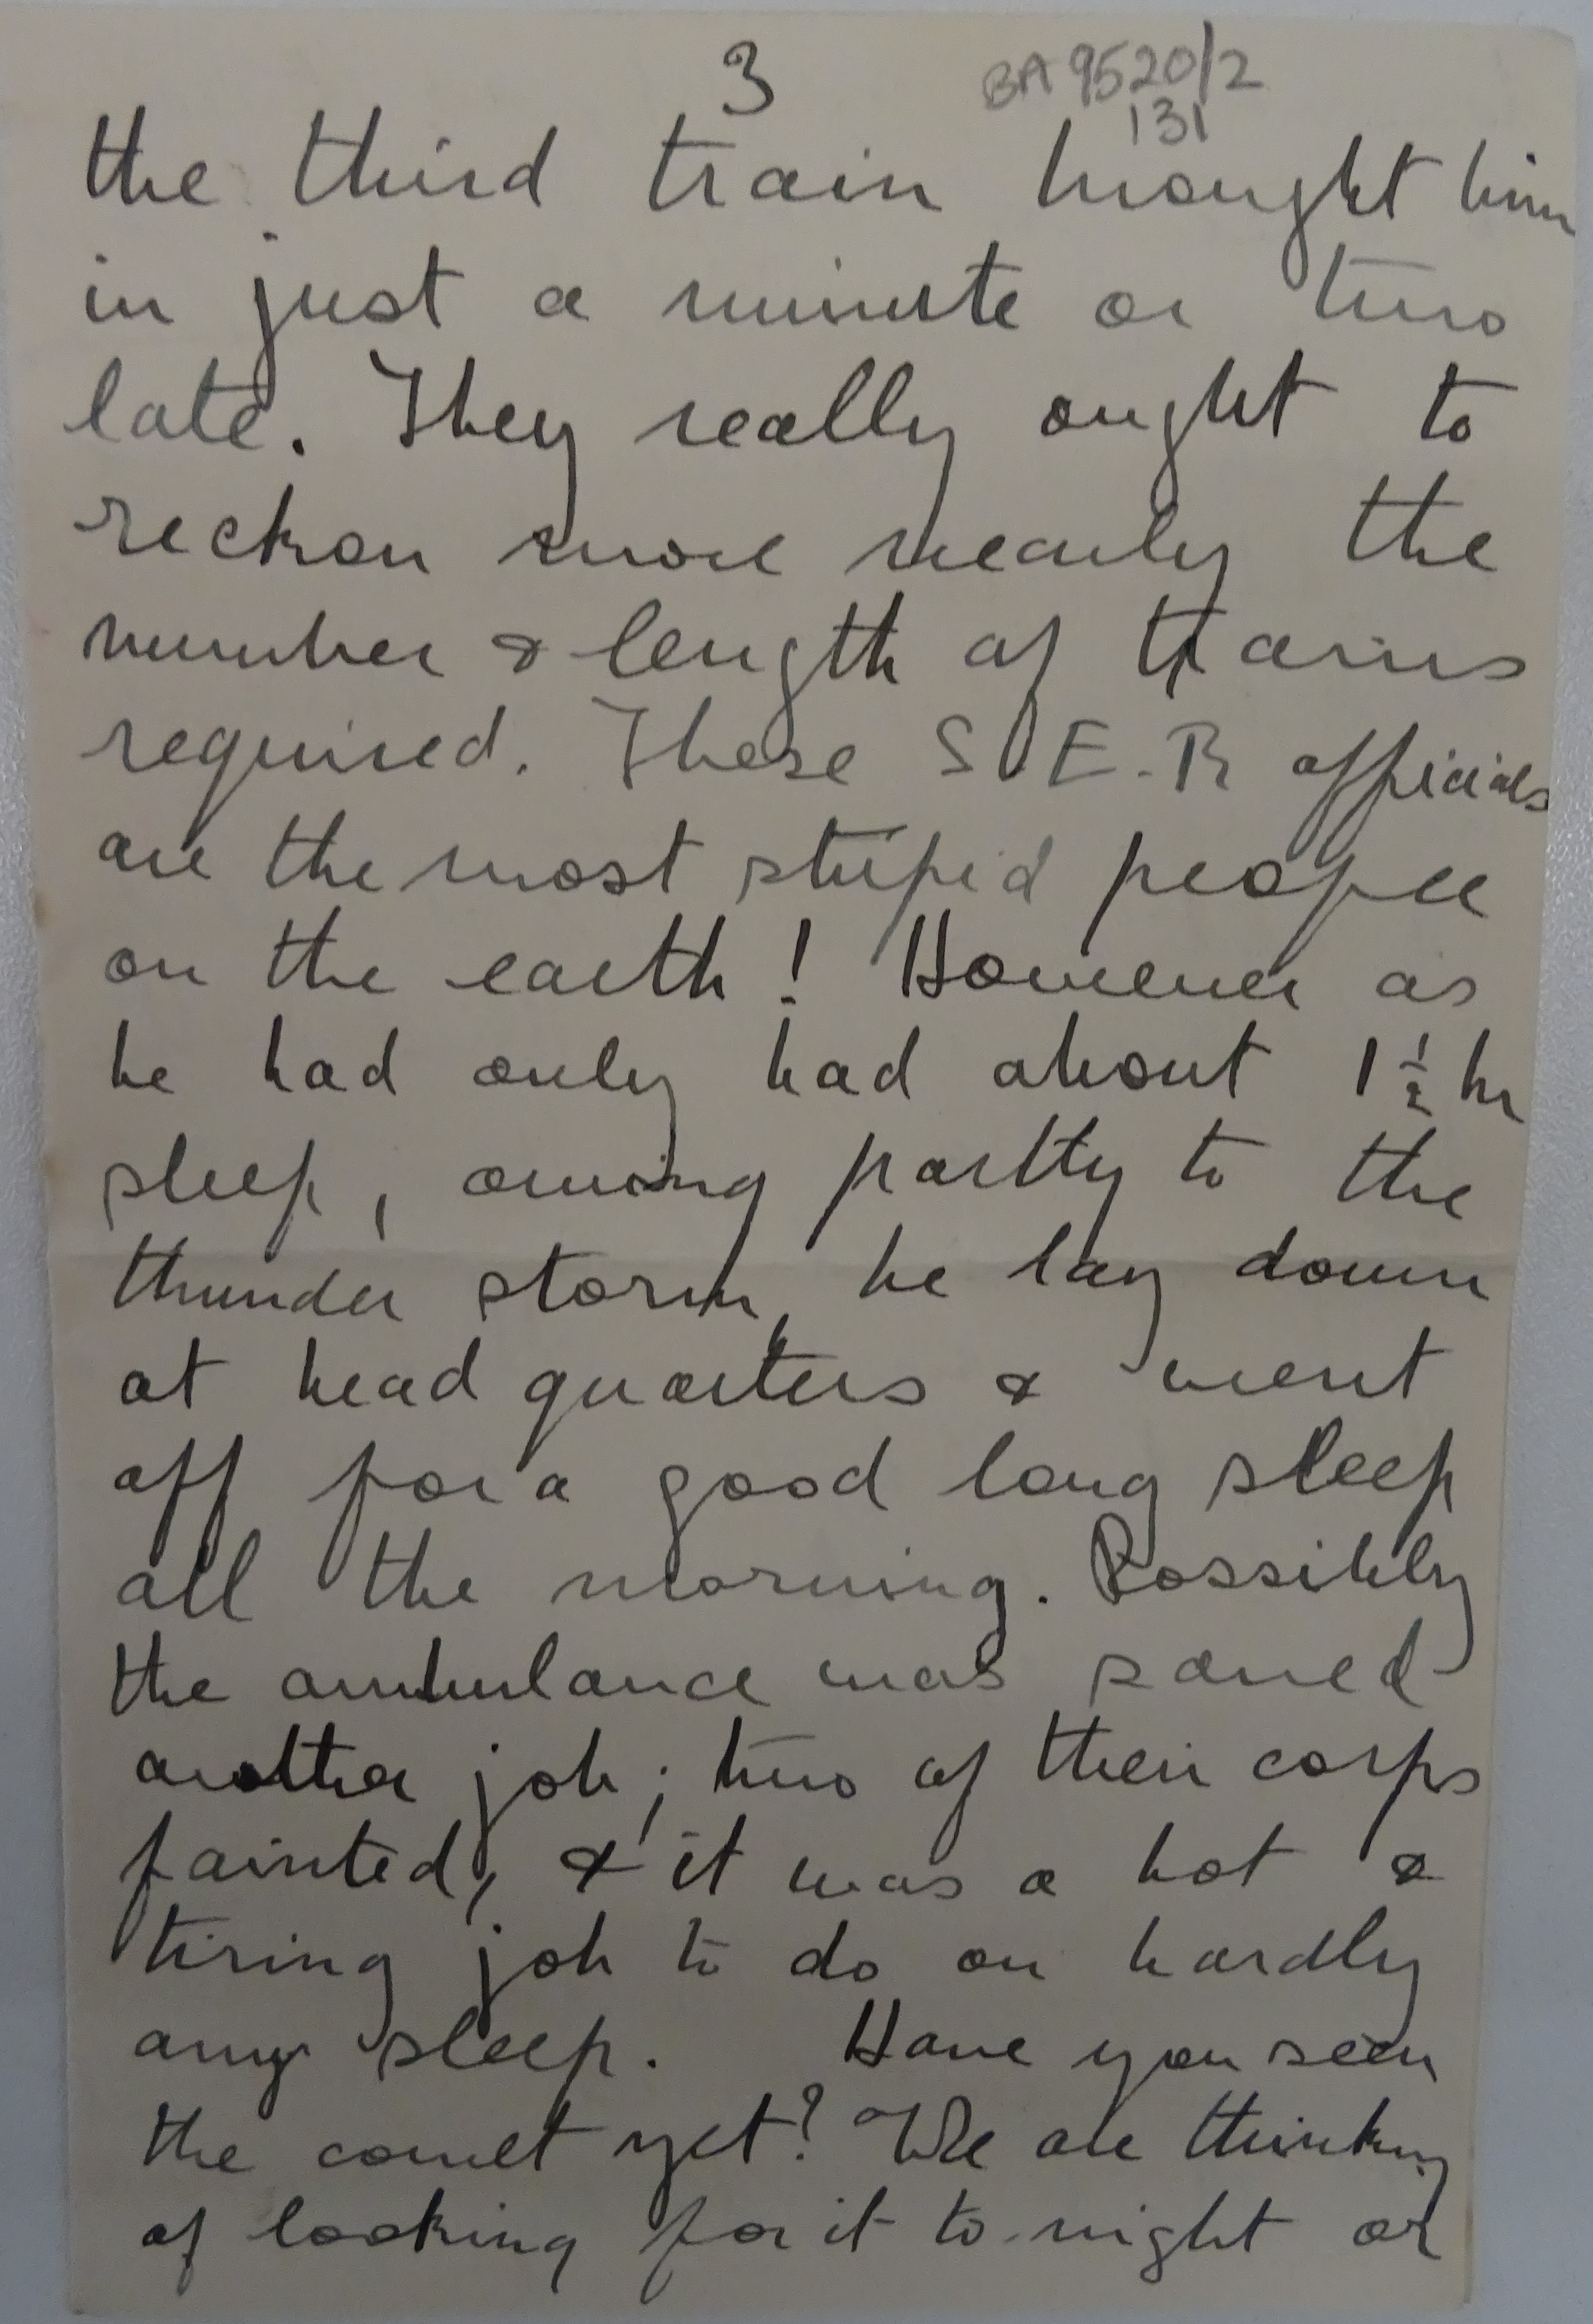 3
BA 9520/2
131
the third train brought him
in just a minute or two
late. They really ought to
reckon more nearly the
number & length of trains
required. These S.E.R officials
are the most stupid people
on the earth! However as
he had only had about 1½ hr
sleep, owing partly to the
thunder storm, he lay down
at head quarters & went
off for a good long sleep
all the morning. Possibly
the ambulance was saved
another job; two of their corps
fainted, & it was a hot &
tiring job to do on hardly
any sleep. Have you seen
the comet yet? We are thinking
of looking for it to-night or